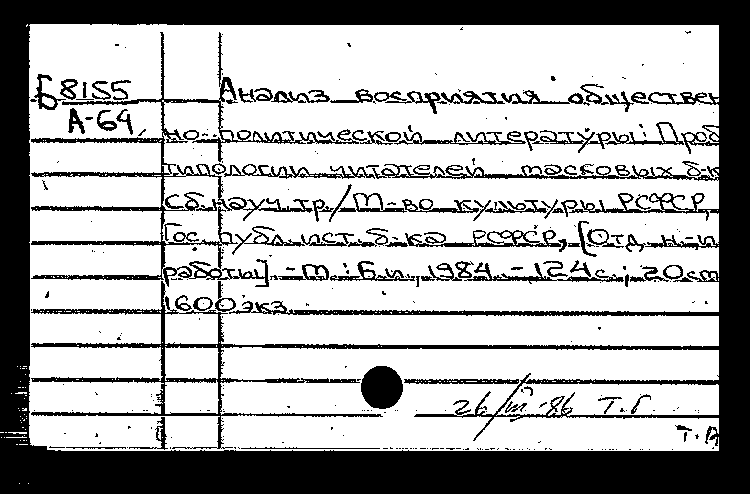 Б8155
А-64
Анализ восприятия обществен
но-политической литературы: Проб
типологии читателей массовых б-к
Сб. науч. тр./М-во культуры РСФСР,
Гос. публ. ист. б-ка РСФСР, [Отд. н.-и
работы]. - М.: Б.и., 1984. - 124с.; 20см
1600 экз
26/III-86 Т.Г
Т.А